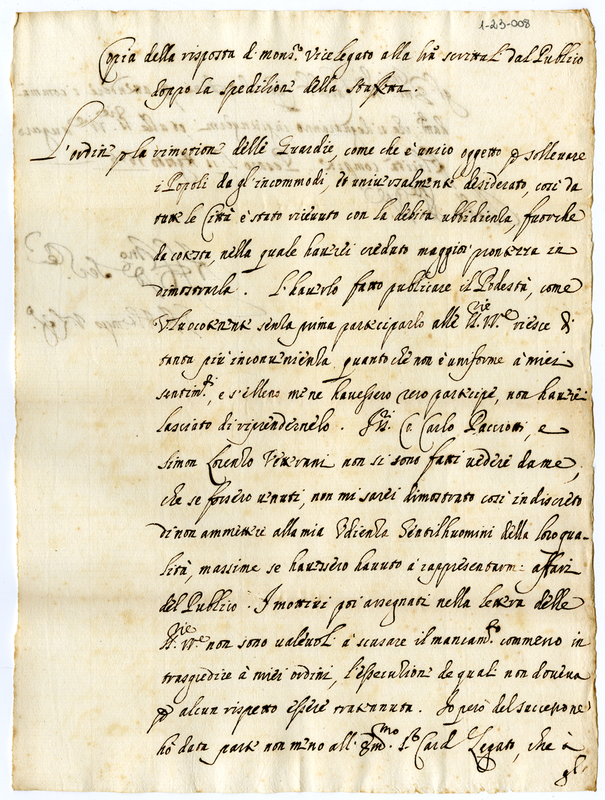 1-23-008
Copia della risposta di mons.r Vicelegato alla l'ra scrittali dal Publico
doppo la spedition della staffetta.
L'ordin p la rimotion delle Guardie, come che è unico oggetto p solleuare
i Popoli da gl'incommodi, et uniuersalmente desiderato, così da
tutte le Città è stato riceuuto con la debita ubbidienza, fuorche
da cotesta, nella quale hauerei creduto maggior prontezza in
dimostrarla. L'hauerlo fatto publicare il Podestà, come
Vluocotenente senza prima participarlo alle SS.rie VV.re riesce di
tanta più inconuenienza quanto che non è uniforme à miei
sentim.ti, e s'elleno me ne hauessero reso partecipe, non hauerei
lasciato di riprendernelo. SS.ri Co. Carlo Pacciotti, e
Simon Lorenzo Vetterani non si sono fatti uedere da me,
che se fossero uenuti, non mi sarei dimostrato così indiscreto
di non ammettere alla mia Udienza Gentilhuomini della loro qua-
lità, massime se hauessero hauuto à rappresentarmi affari
del Publico. I mottiui poi assegnati nella lettera delle
SS.rie VV.re non sono ualeuoli à scusare il mancam.to commesso in
trasgredire à miei ordini, l'essecutione de quali non doueua
p alcun rispetto essere trattenuta. Io però del successone
hò data parte non meno all'Em.mo S.r Card. Legato, che à
gl'